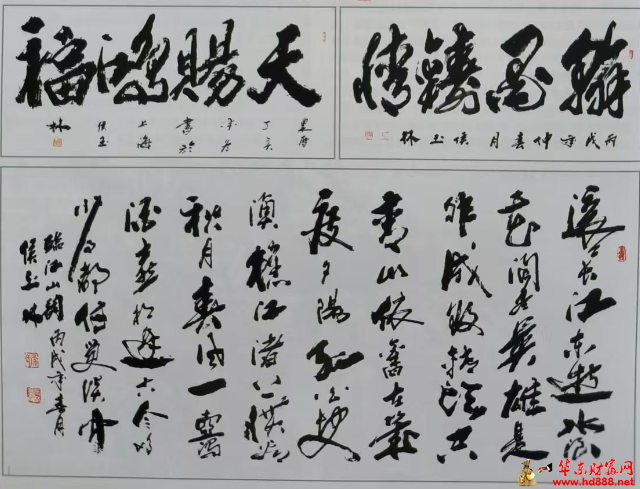 翰墨鑄情
丙戌年仲春月侯玉林
天賜鴻福
丁亥
書於
上海
侯玉
林
滚滚长江东逝水浪
花淘尽英雄是
非成败转头空
青山依舊在幾
度夕陽红白发
渔樵江渚上惯看
秋月春风一壶
濁酒喜相逢古今多
少事都付笑谈中
臨江仙词丙戌年春月
侯玉林
华东财富网
www.hd888.net